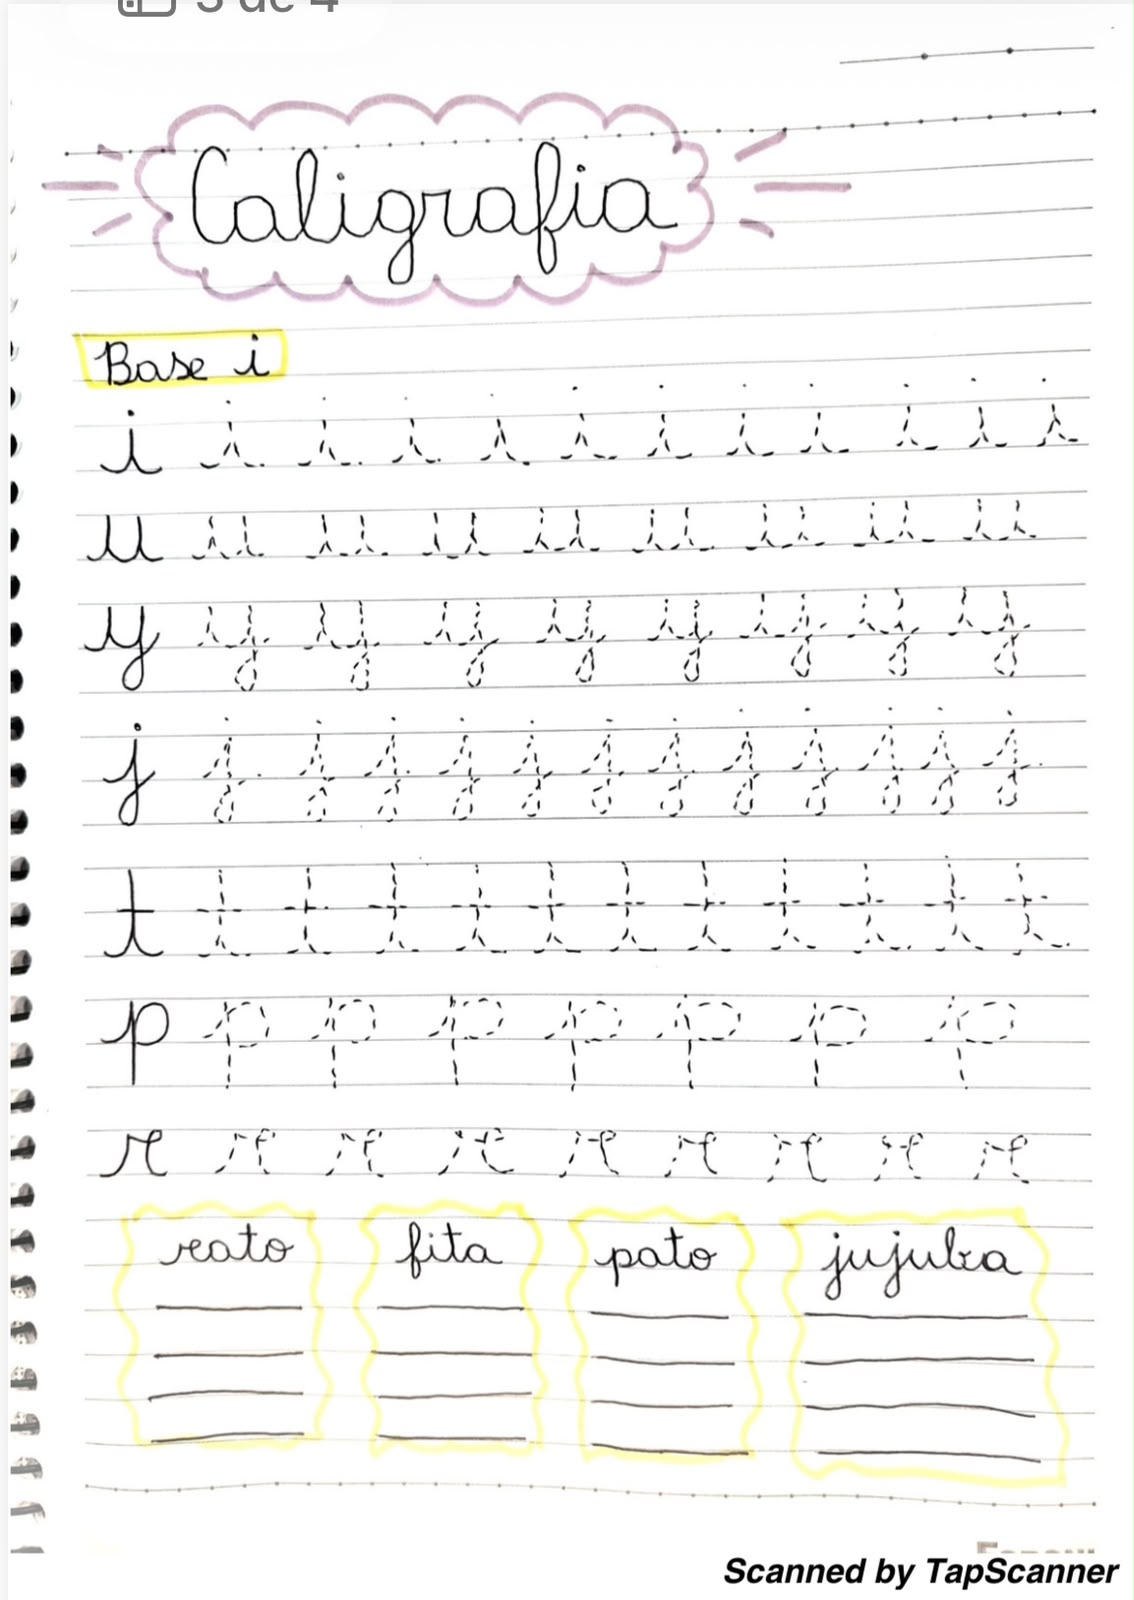 3 de 4
Caligrafia
Base i
i i i i i i i i i i i i
u u u u u u u u u
y y y y y y y y y
j j j j j j j j j j j j j
t t t t t t t t t t t t
p p p p p p p p
r r r r r r r r r
rato fita pato jujuba
Scanned by TapScanner